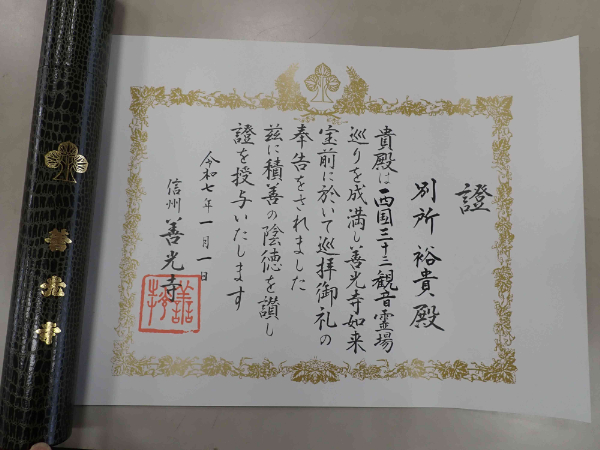 證
別所 裕貴 殿
貴殿は西国三十三観音霊場
巡りを成満し善光寺如来
宝前に於いて巡拝御礼の
奉告をされました
茲に積善の陰徳を讃し
證を授与いたします
令和七年一月一日
信州 善光寺
善光寺